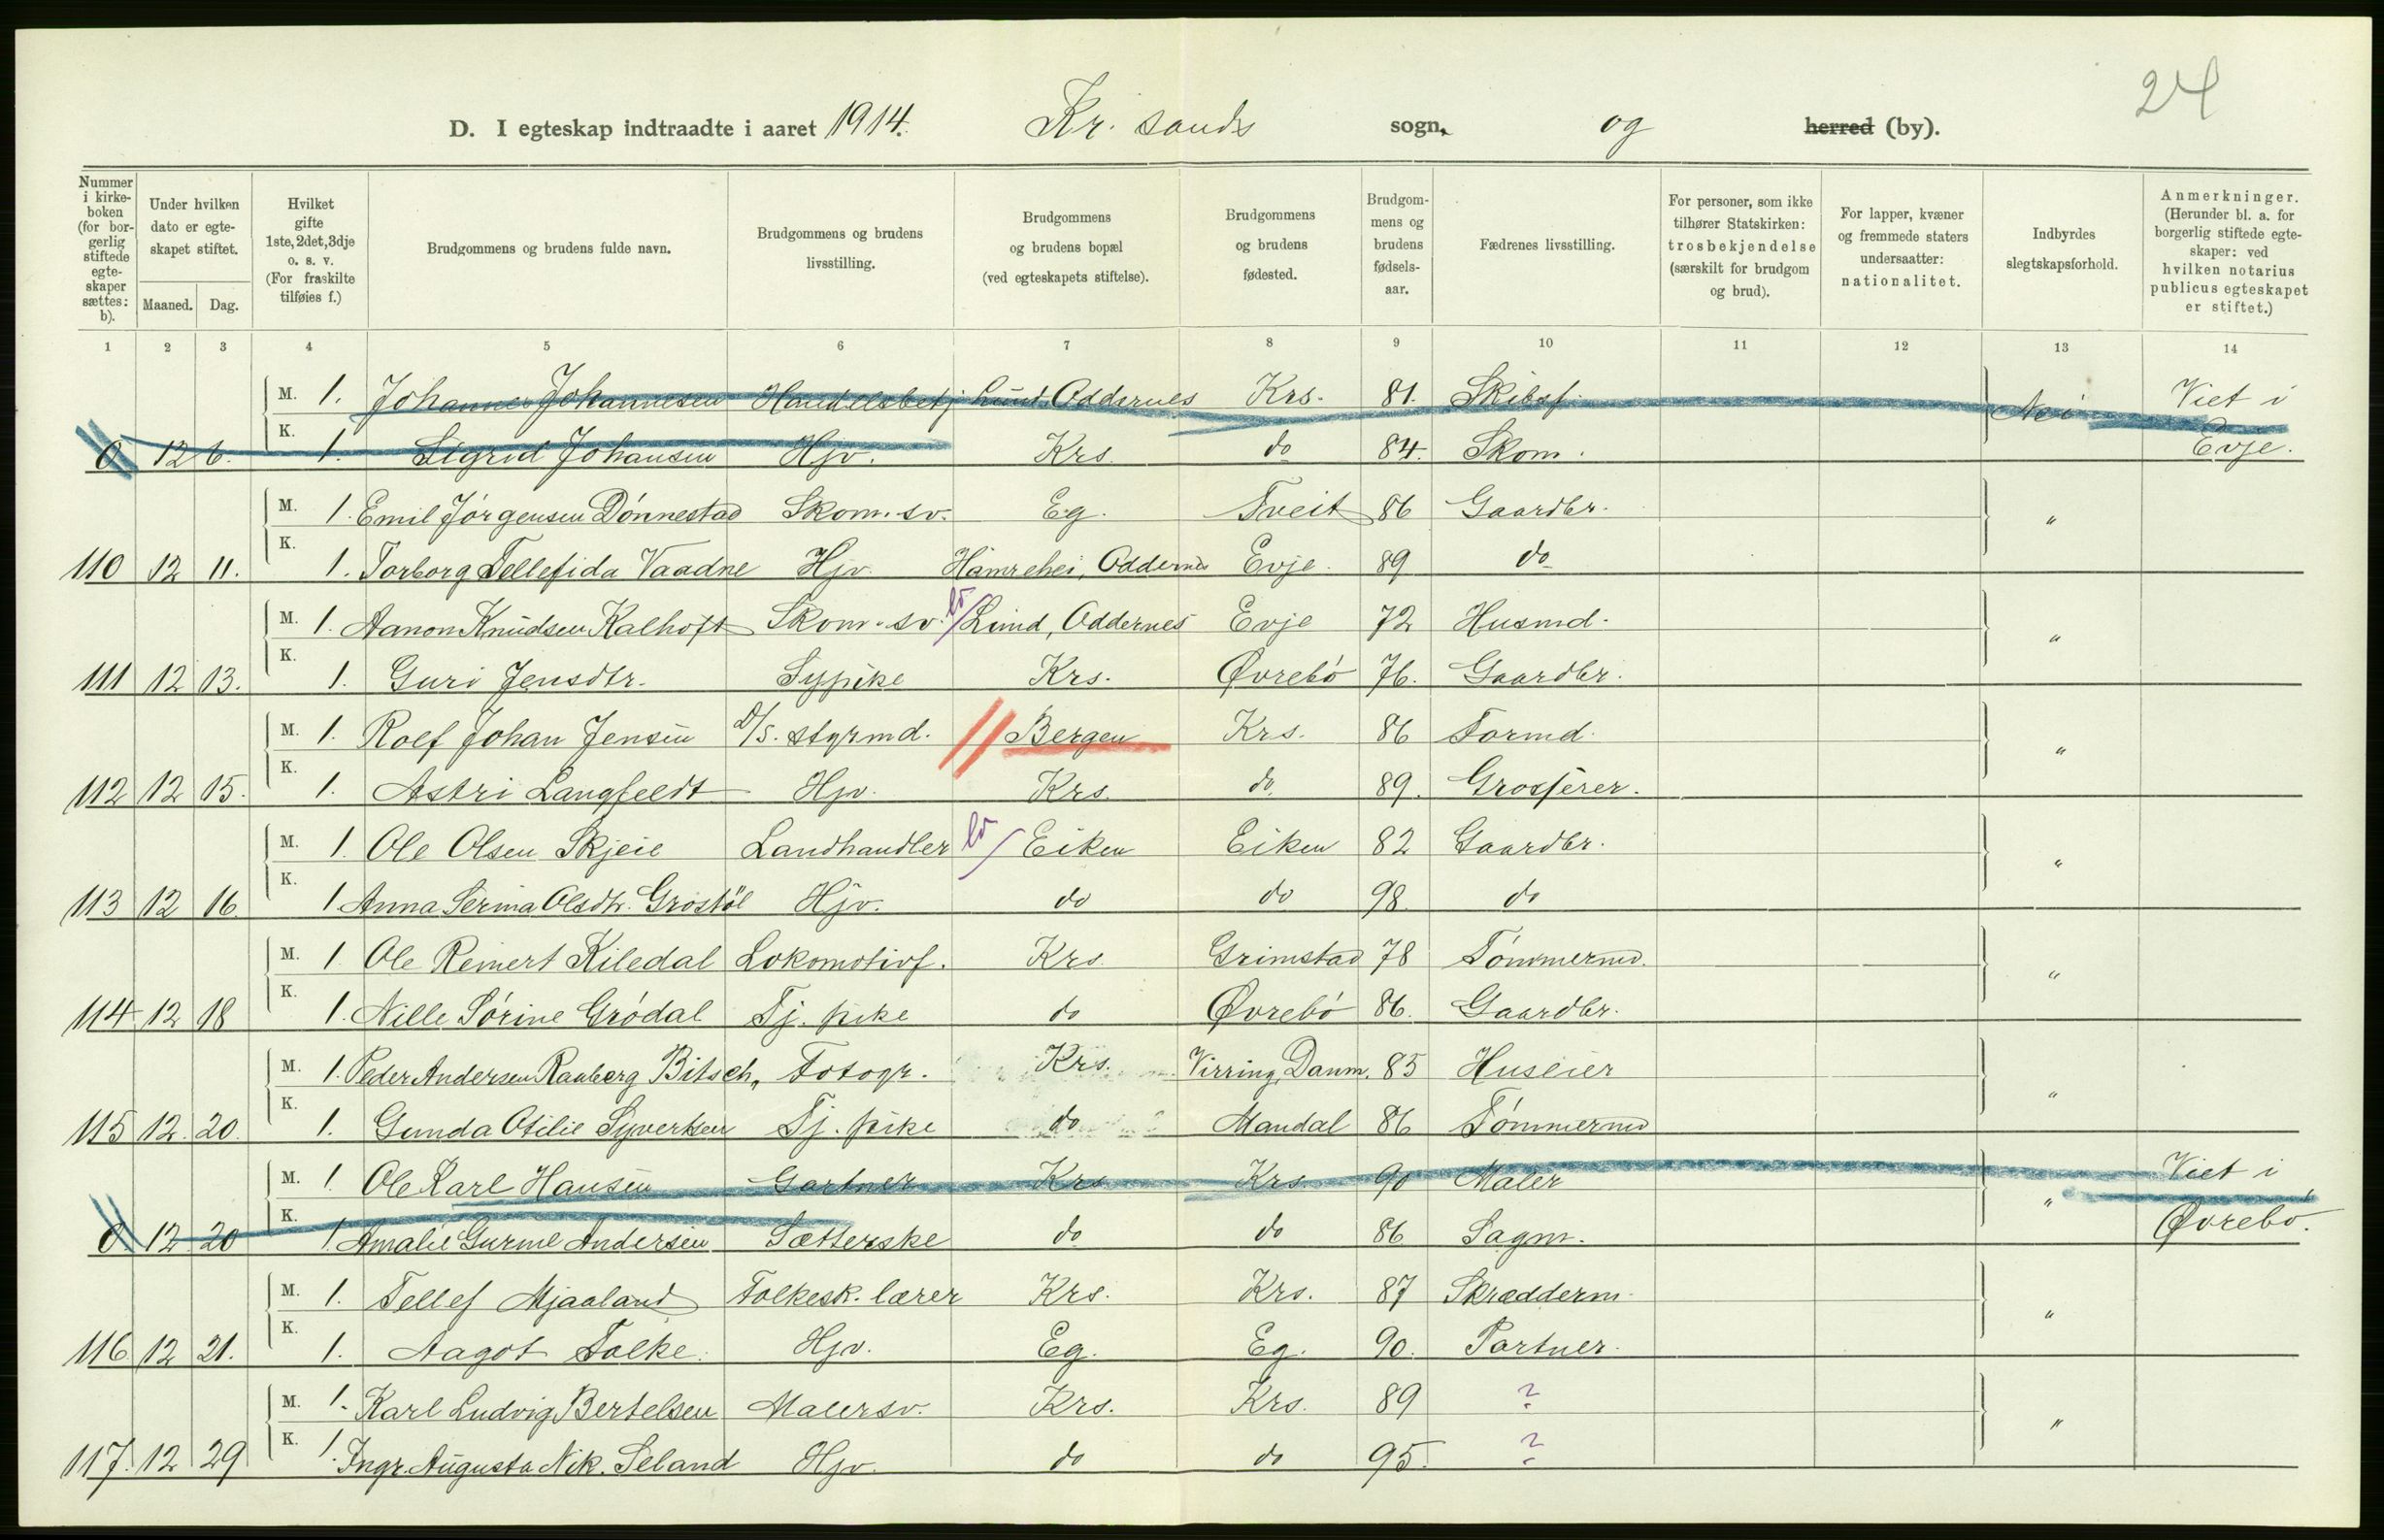 24
D. I egteskap indtraadte i aaret 1914. Kr. sands sogn, og herred (by).
Nummer i kirkeboken (for borgerlig stiftede egteskaper sættes: b).
Under hvilken dato er egteskapet stiftet.
Maaned. Dag.
Hvilket gifte 1ste, 2det, 3dje o. s. v. (For fraskilte tilføies f.)
Brudgommens og brudens fulde navn.
Brudgommens og brudens livsstilling.
Brudgommens og brudens bopæl (ved egteskapets stiftelse).
Brudgommens og brudens fødested.
Brudgommens og brudens fødselsaar.
Fædrenes livsstilling.
For personer, som ikke tilhører Statskirken: trosbekjendelse (særskilt for brudgom og brud).
For lapper, kvæner og fremmede staters undersaatter: nationalitet.
Indbyrdes slegtskapsforhold.
Anmerkninger. (Herunder bl. a. for borgerlig stiftede egteskaper: ved hvilken notarius publicus egteskapet er stiftet.)
1 2 3 4 5 6 7 8 9 10 11 12 13 14
M. 1. Johannes Johannesen Handelsbetj. Lund, Oddernes Krs. 81. Skibsf. Nei Viet i
0 12 6. K. 1. Sigrid Johansen Hjv. Krs. do 84. Skom. Evje.
M. 1. Emil Jörgensen Dönnestad Skom. sv. Eg. Tveit 86 Gaardbr. "
110 12 11. K. 1. Torborg Tellefida Vaadne Hjv. Hamrehei, Oddernes Evje. 89 do
M. 1. Aanon Knudsen Kalhoft Skom. sv. Lund, Oddernes Evje 72 Husmd. "
111 12 13. K. 1. Guri Jensdtr. Sypike Krs. Øvrebö 76. Gaardbr.
M. 1. Rolf Johan Jensen D/S. styrmd. Bergen Krs. 86 Formd. "
112 12 15. K. 1. Astri Langfeldt Hjv. Krs. do. 89. Grosserer.
M. 1. Ole Olsen Skjeie Landhandler Eiken Eiken 82 Gaardbr. "
113 12 16. K. 1 Anna Serina Olsdtr. Grostöl Hjv. do do 98. do
M. 1 Ole Reinert Kiledal Lokomotivf. Krs. Grimstad 78 Tömmermd. "
114 12 18 K. 1. Nille Sörine Grödal Tj. pike do Øvrebö 86. Gaardbr.
M. 1. Peder Andersen Raaberg Bitsch, Fotogr. Krs. Virring, Danm. 85 Huseier "
115 12. 20. K. 1. Gunda Otilie Syvertsen Tj. pike do Mandal 86 Tömmermd
M. 1. Ole Karl Hansen Gartner Krs. Krs. 90 Maler " Viet i
0. 12 20 K. 1. Amalie Gurine Andersen Sætterske do do 86 Sagm. Øvrebö.
M. 1. Tellef Mjaaland Folkesk. lærer Krs. Krs. 87 Skrædderm. "
116. 12 21. K. 1. Aagot Falke. Hjv. Eg. Eg. 90. Partner.
M. 1. Karl Ludvig Bertelsen Malersv. Krs. Krs. 89 ? "
117. 12 29 K. 1. Ingr. Augusta Nik. Seland Hjv. do do 95. ?